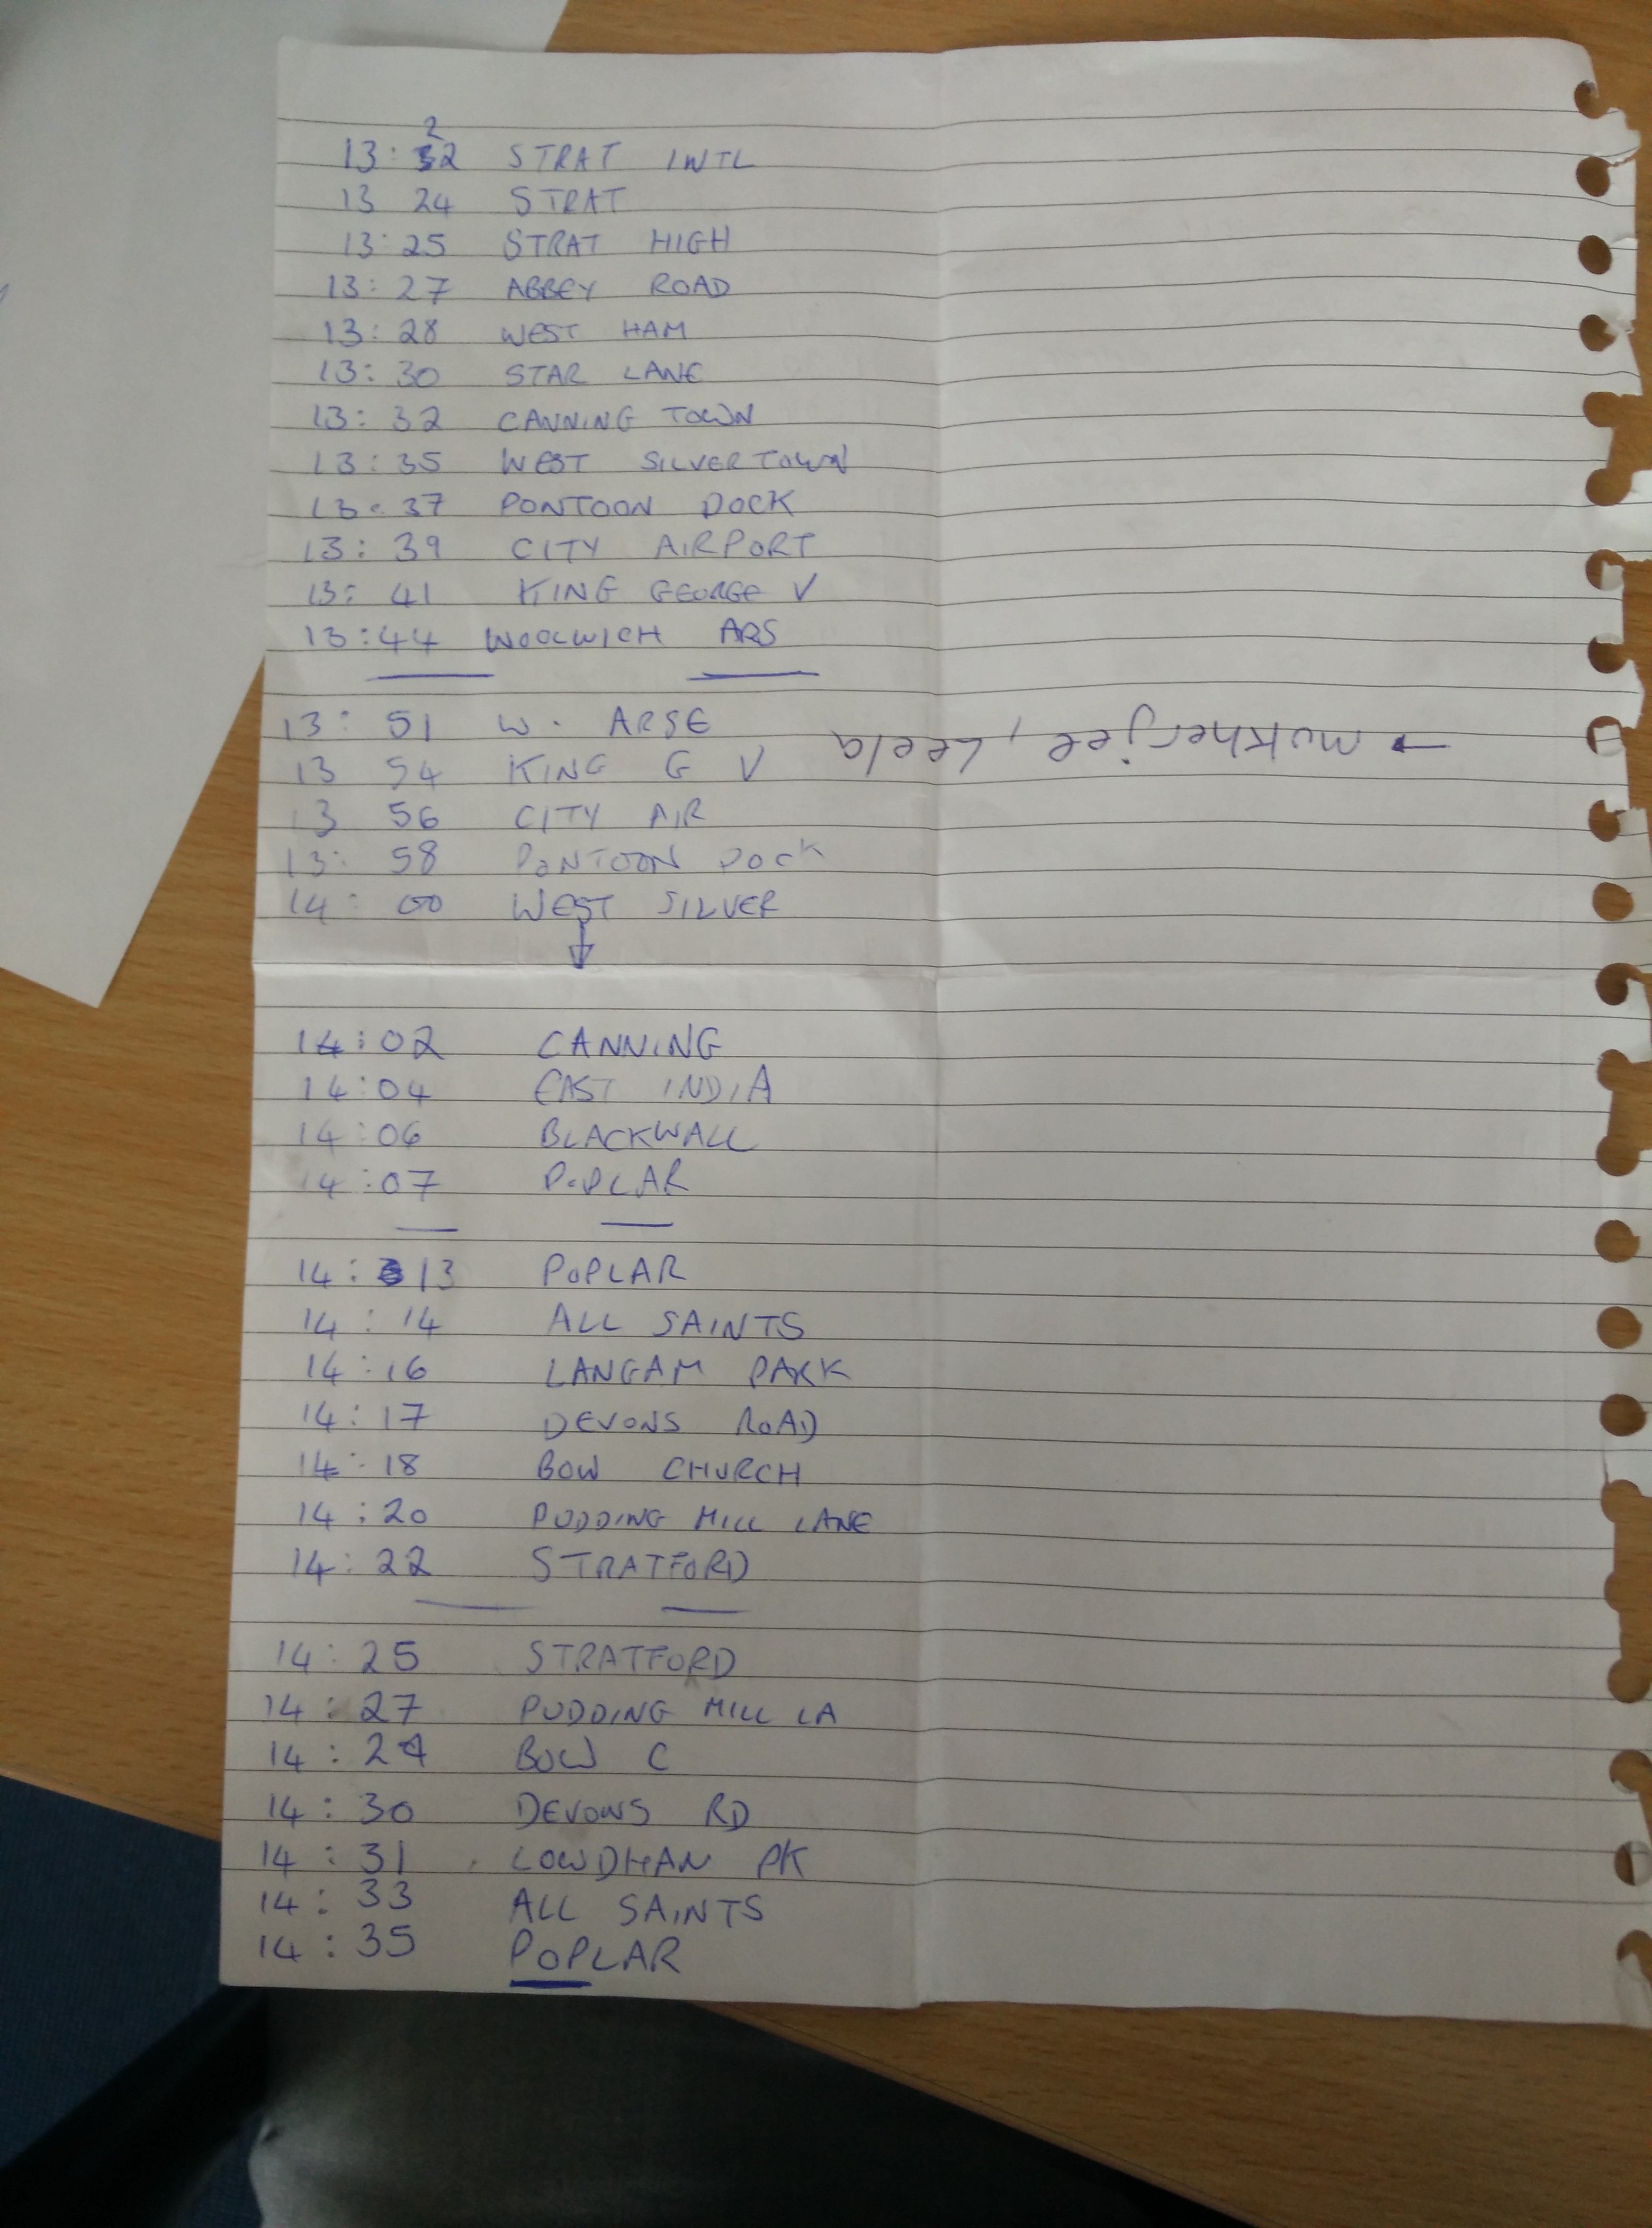 13:22 STRAT INTL
13 24 STRAT
13:25 STRAT HIGH
13:27 ABBEY ROAD
13:28 WEST HAM
13:30 STAR LANE
13:32 CANNING TOWN
13:35 WEST SILVERTOWN
13:37 PONTOON DOCK
13:39 CITY AIRPORT
13:41 KING GEORGE V
13:44 WOOLWICH ARS
13:51 W. ARSE
→ Mukherjee, Leela
13 54 KING G V
13 56 CITY AIR
13:58 PONTOON DOCK
14:00 WEST SILVER
↓
14:02 CANNING
14:04 EAST INDIA
14:06 BLACKWALL
14:07 POPLAR
14:13 POPLAR
14:14 ALL SAINTS
14:16 LANGAM PARK
14:17 DEVONS ROAD
14:18 BOW CHURCH
14:20 PUDDING MILL LANE
14:22 STRATFORD
14:25 STRATFORD
14:27 PUDDING MILL LA
14:29 BOW C
14:30 DEVONS RD
14:31 LOWDHAN PK
14:33 ALL SAINTS
14:35 POPLAR